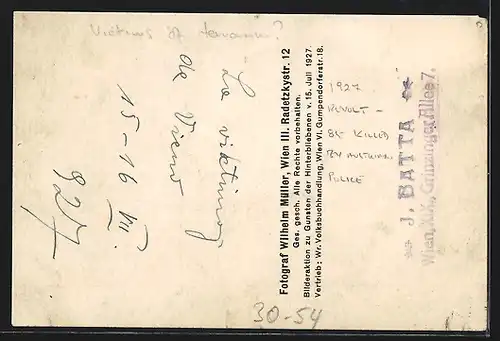 Victims of
La viktimoj
de Vieno
15-16 VII.
927
Fotograf Wilhelm Müller, Wien III. Radetzkystr. 12
Ges. gesch. Alle Rechte vorbehalten.
Bilderaktion zu Gunsten der Hinterbliebenen v. 15. Juli 1927.
Vertrieb: Wr. Volksbuchhandlung, Wien VI. Gumpendorferstr. 18.
1927
REVOLT -
85 KILLED
BY AUSTRIAN
POLICE
J. BATTA
Wien, XIX., Grinzinger Allee 7.
30-54